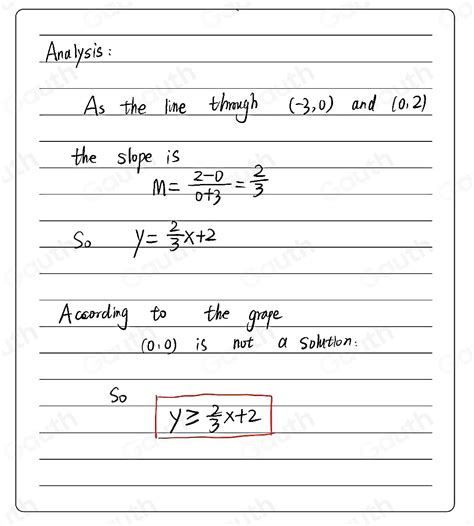 Analysis:
As the line through (-3,0) and (0,2)
the slope is
M = \frac{2-0}{0+3} = \frac{2}{3}
So y = \frac{2}{3}x+2
According to the grape
(0,0) is not a solution.
So
y ≥ \frac{2}{3}x+2
Gauth